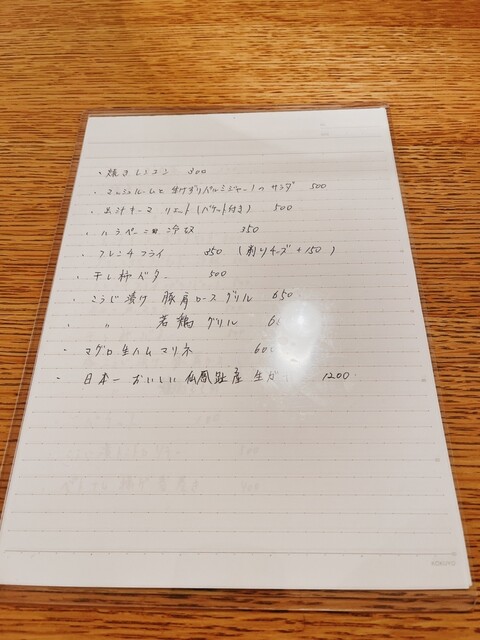 ・焼きレンコン 300
・マッシュルームと生けずりパルミジャーノのサラダ 500
・出汁チーズ リエット(バゲット付き) 500
・ハラペーニョ 冷奴 350
・フレンチフライ 350 (削りチーズ +150)
・干し柿バター 500
・こうじ漬け 豚肩ロース グリル 650
・ 〃 若鶏 グリル
・マグロ生ハムマリネ 600
・日本一おいしい 仏鳳趾産 生ガ 1200
KOKUYO